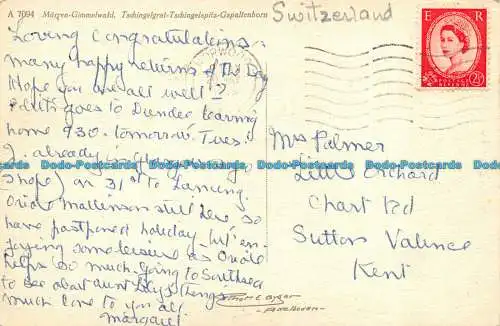 A 7094 Mürren-Gimmelwald. Tschingelgrat-Tschingelspitz-Gspaltenhorn
Switzerland
E R
POSTAGE REVENUE
2½
Loving Congratulations
many happy returns of the Day
Hope you are all well?
goes to Dundee leaving
home 9.30. tomorrow. Tues.
I already
I hope) on 31st to Lancing.
Oriole Mallinson still here so
have postponed holiday - but en-
joying some leisure as Oriole
helps so much. Going to Southsea
to see about aunt Lily's things
much love to you all
Margaret
Mrs Palmer
Little Orchard
Chart Rd
Sutton Valence
Kent
Dodo-Postcards Dodo-Postcards Dodo-Postcards Dodo-Postcards Dodo-Postcards